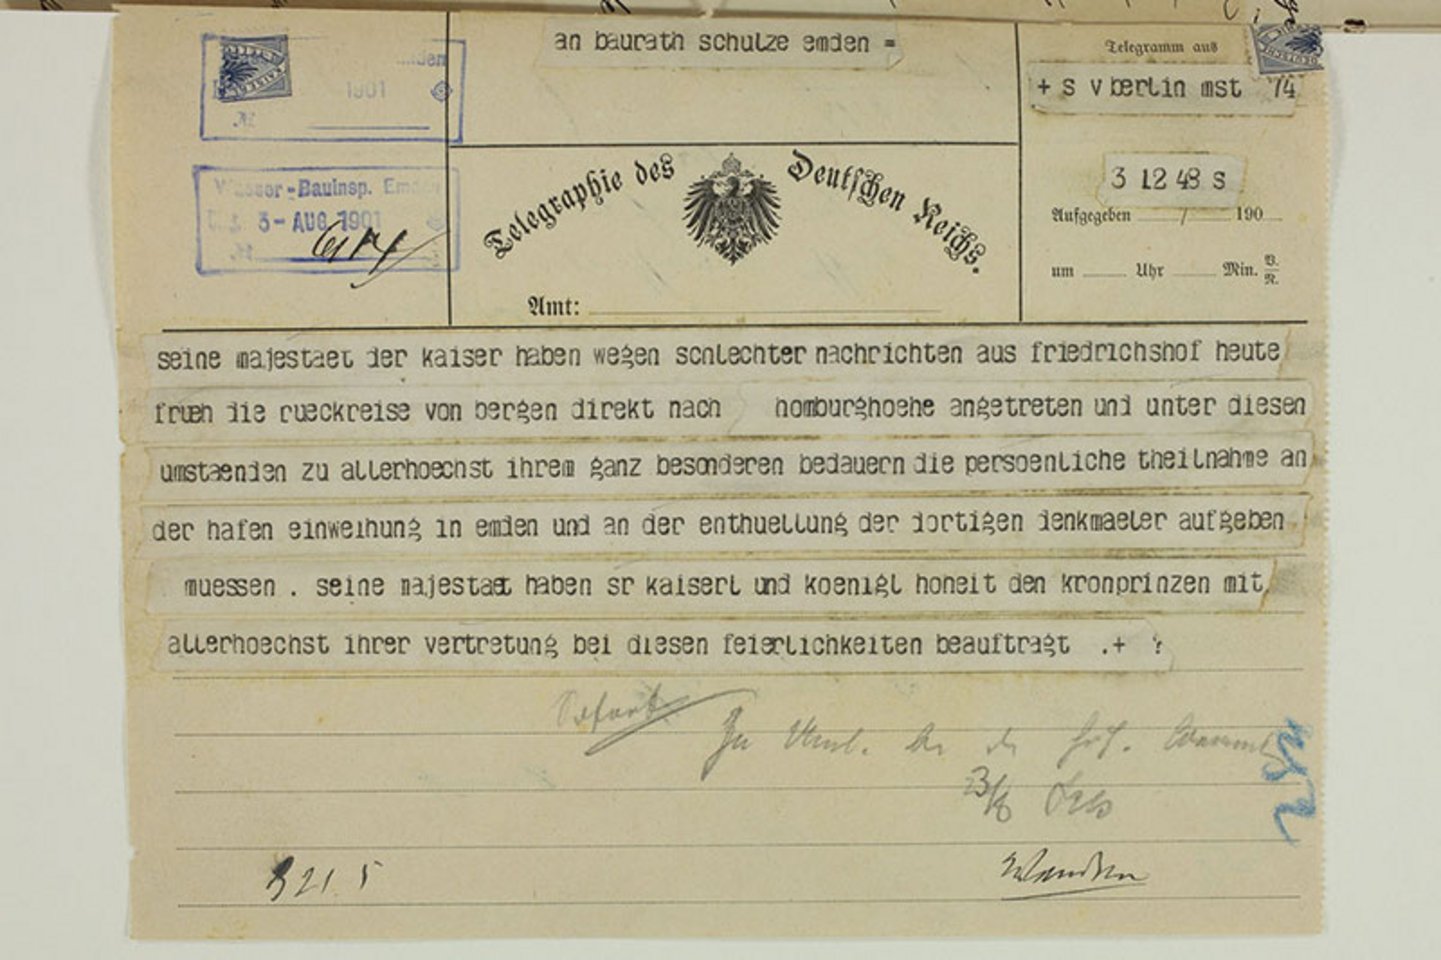 an baurath schulze emden =
Telegramm aus
+ s v berlin mst 74
3 12 48 s
Aufgegeben / 190
um Uhr Min. V. N.
1901
Wasser-Bauinsp. Emden
3-AUG. 1901
Telegraphie des Deutschen Reichs.
Amt:
seine majestaet der kaiser haben wegen schlechter nachrichten aus friedrichshof heute
frueh die rueckreise von bergen direkt nach homburghoehe angetreten und unter diesen
umstaenden zu allerhoechst ihrem ganz besonderen bedauern die persoenliche theilnahme an
der hafen einweihung in emden und an der enthuellung der dortigen denkmaeler aufgeben
muessen . seine majestaet haben sr kaiserl und koenigl hoheit den kronprinzen mit
allerhoechst ihrer vertretung bei diesen feierlichkeiten beauftragt .+
Sofort
3/8